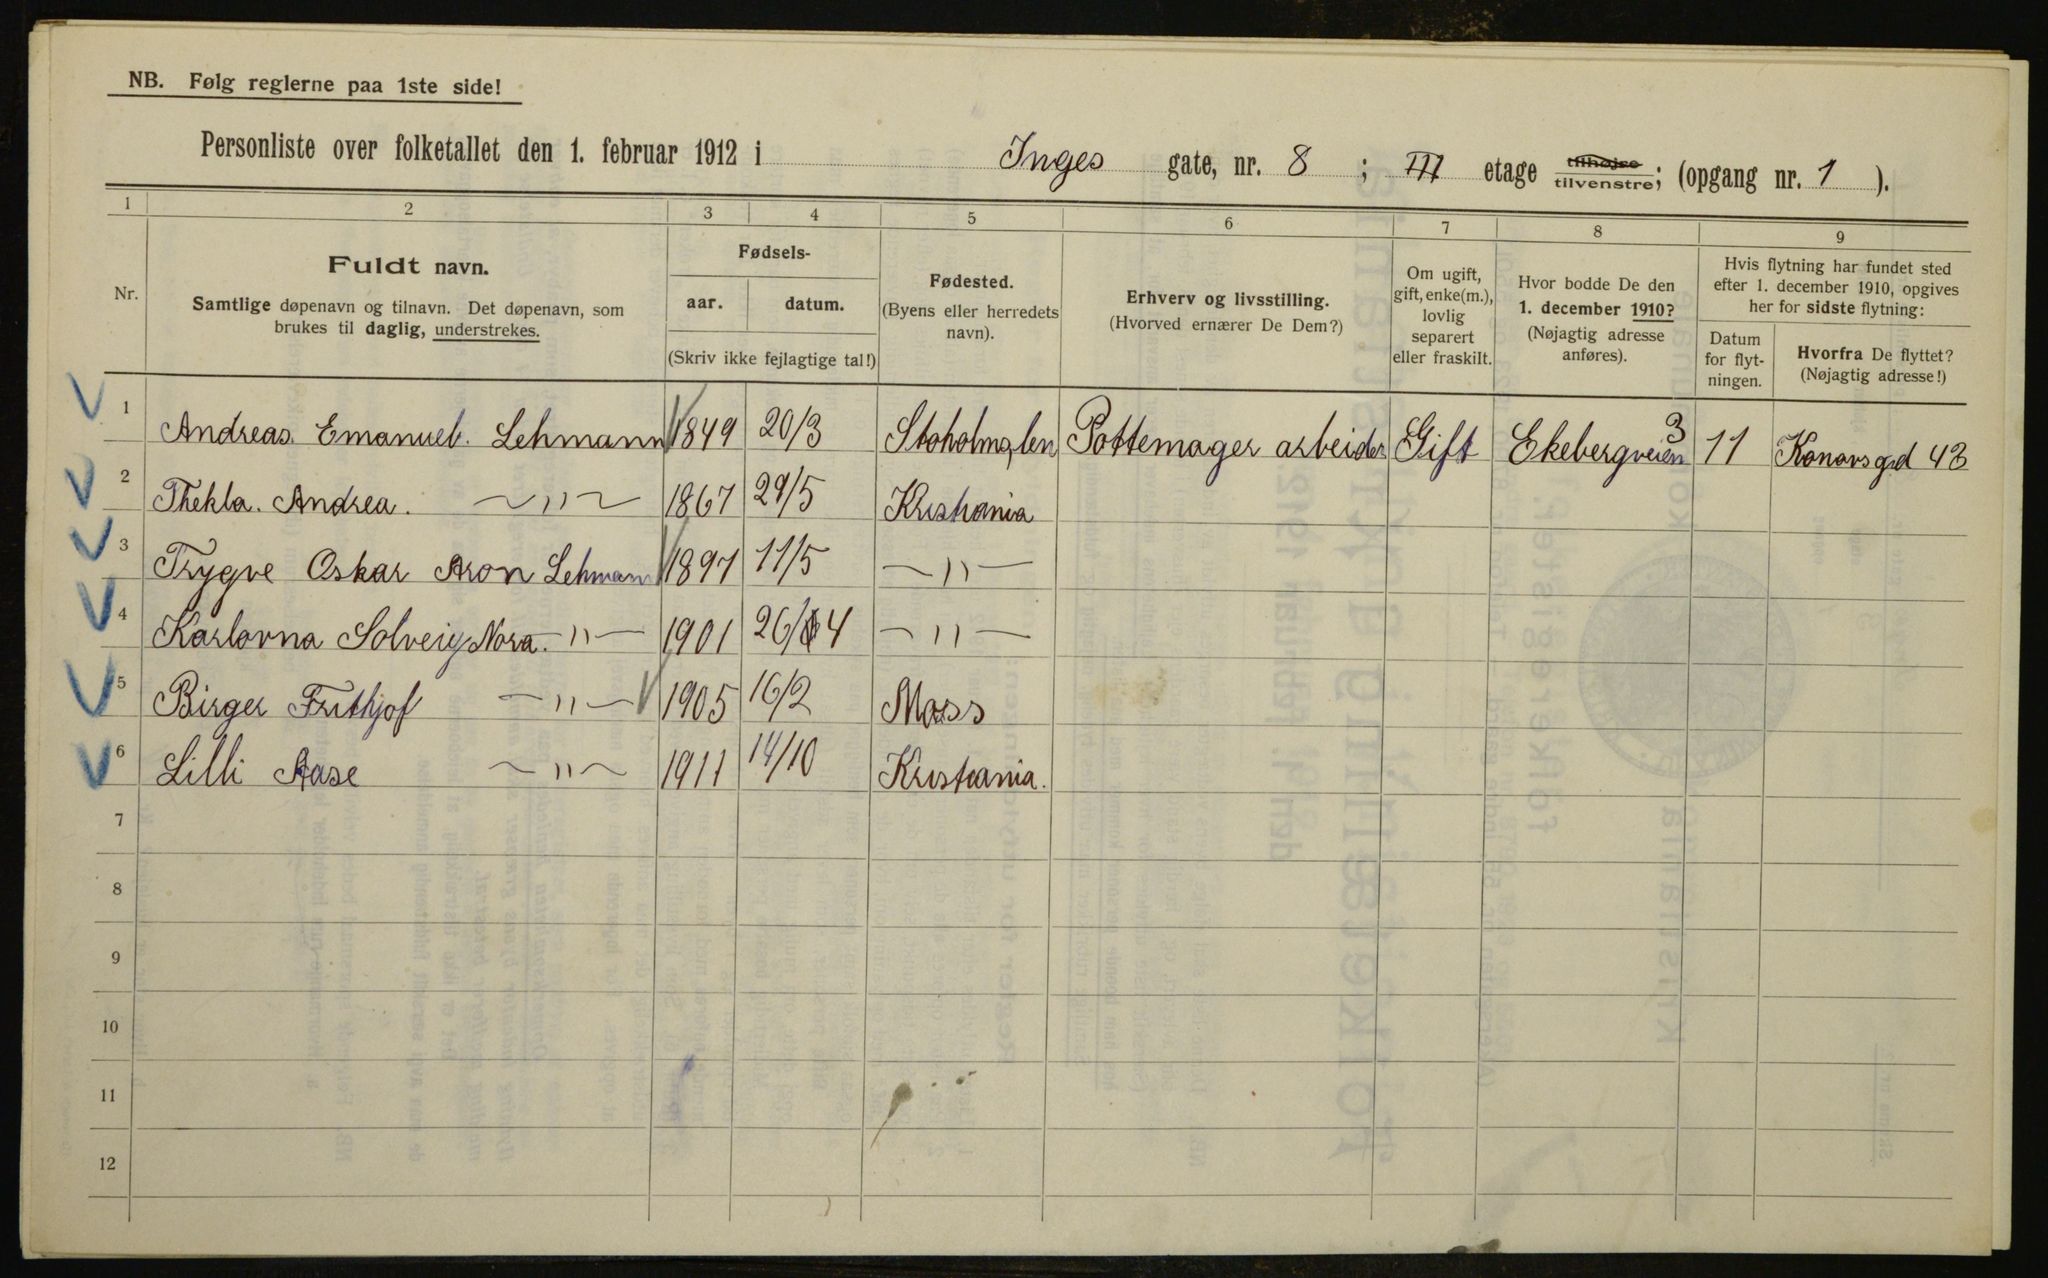 NB. Følg reglerne paa 1ste side!
Personliste over folketallet den 1. februar 1912 i Inges gate, nr. 8 ; III etage tilhøjre / tilvenstre; (opgang nr. 1 ).
1 2 3 4 5 6 7 8 9
Nr.
Fuldt navn.
Samtlige døpenavn og tilnavn. Det døpenavn, som
brukes til daglig, understrekes.
Fødsels-
aar. datum.
(Skriv ikke fejlagtige tal!)
Fødested.
(Byens eller herredets
navn).
Erhverv og livsstilling.
(Hvorved ernærer De Dem?)
Om ugift,
gift, enke(m.),
lovlig
separert
eller fraskilt.
Hvor bodde De den
1. december 1910?
(Nøjagtig adresse
anføres).
Hvis flytning har fundet sted
efter 1. december 1910, opgives
her for sidste flytning:
Datum
for flyt-
ningen.
Hvorfra De flyttet?
(Nøjagtig adresse!)
1 Andreas. Emanuel. Lehmann 1849 20/3 Stoholms len Pottemager arbeider Gift Ekebergveien 3 11 Konowsgd 43
2 Thekla. Andrea. —"— 1867 29/5 Kristiania
3 Trygve Oskar Aron Lehmann 1897 11/5 —"—
4 Karlovna Solveig Nora. —"— 1901 26/4 —"—
5 Birger Frithjof —"— 1905 16/2 Moss
6 Lilli Aase —"— 1911 14/10 Kristiania.
7
8
9
10
11
12